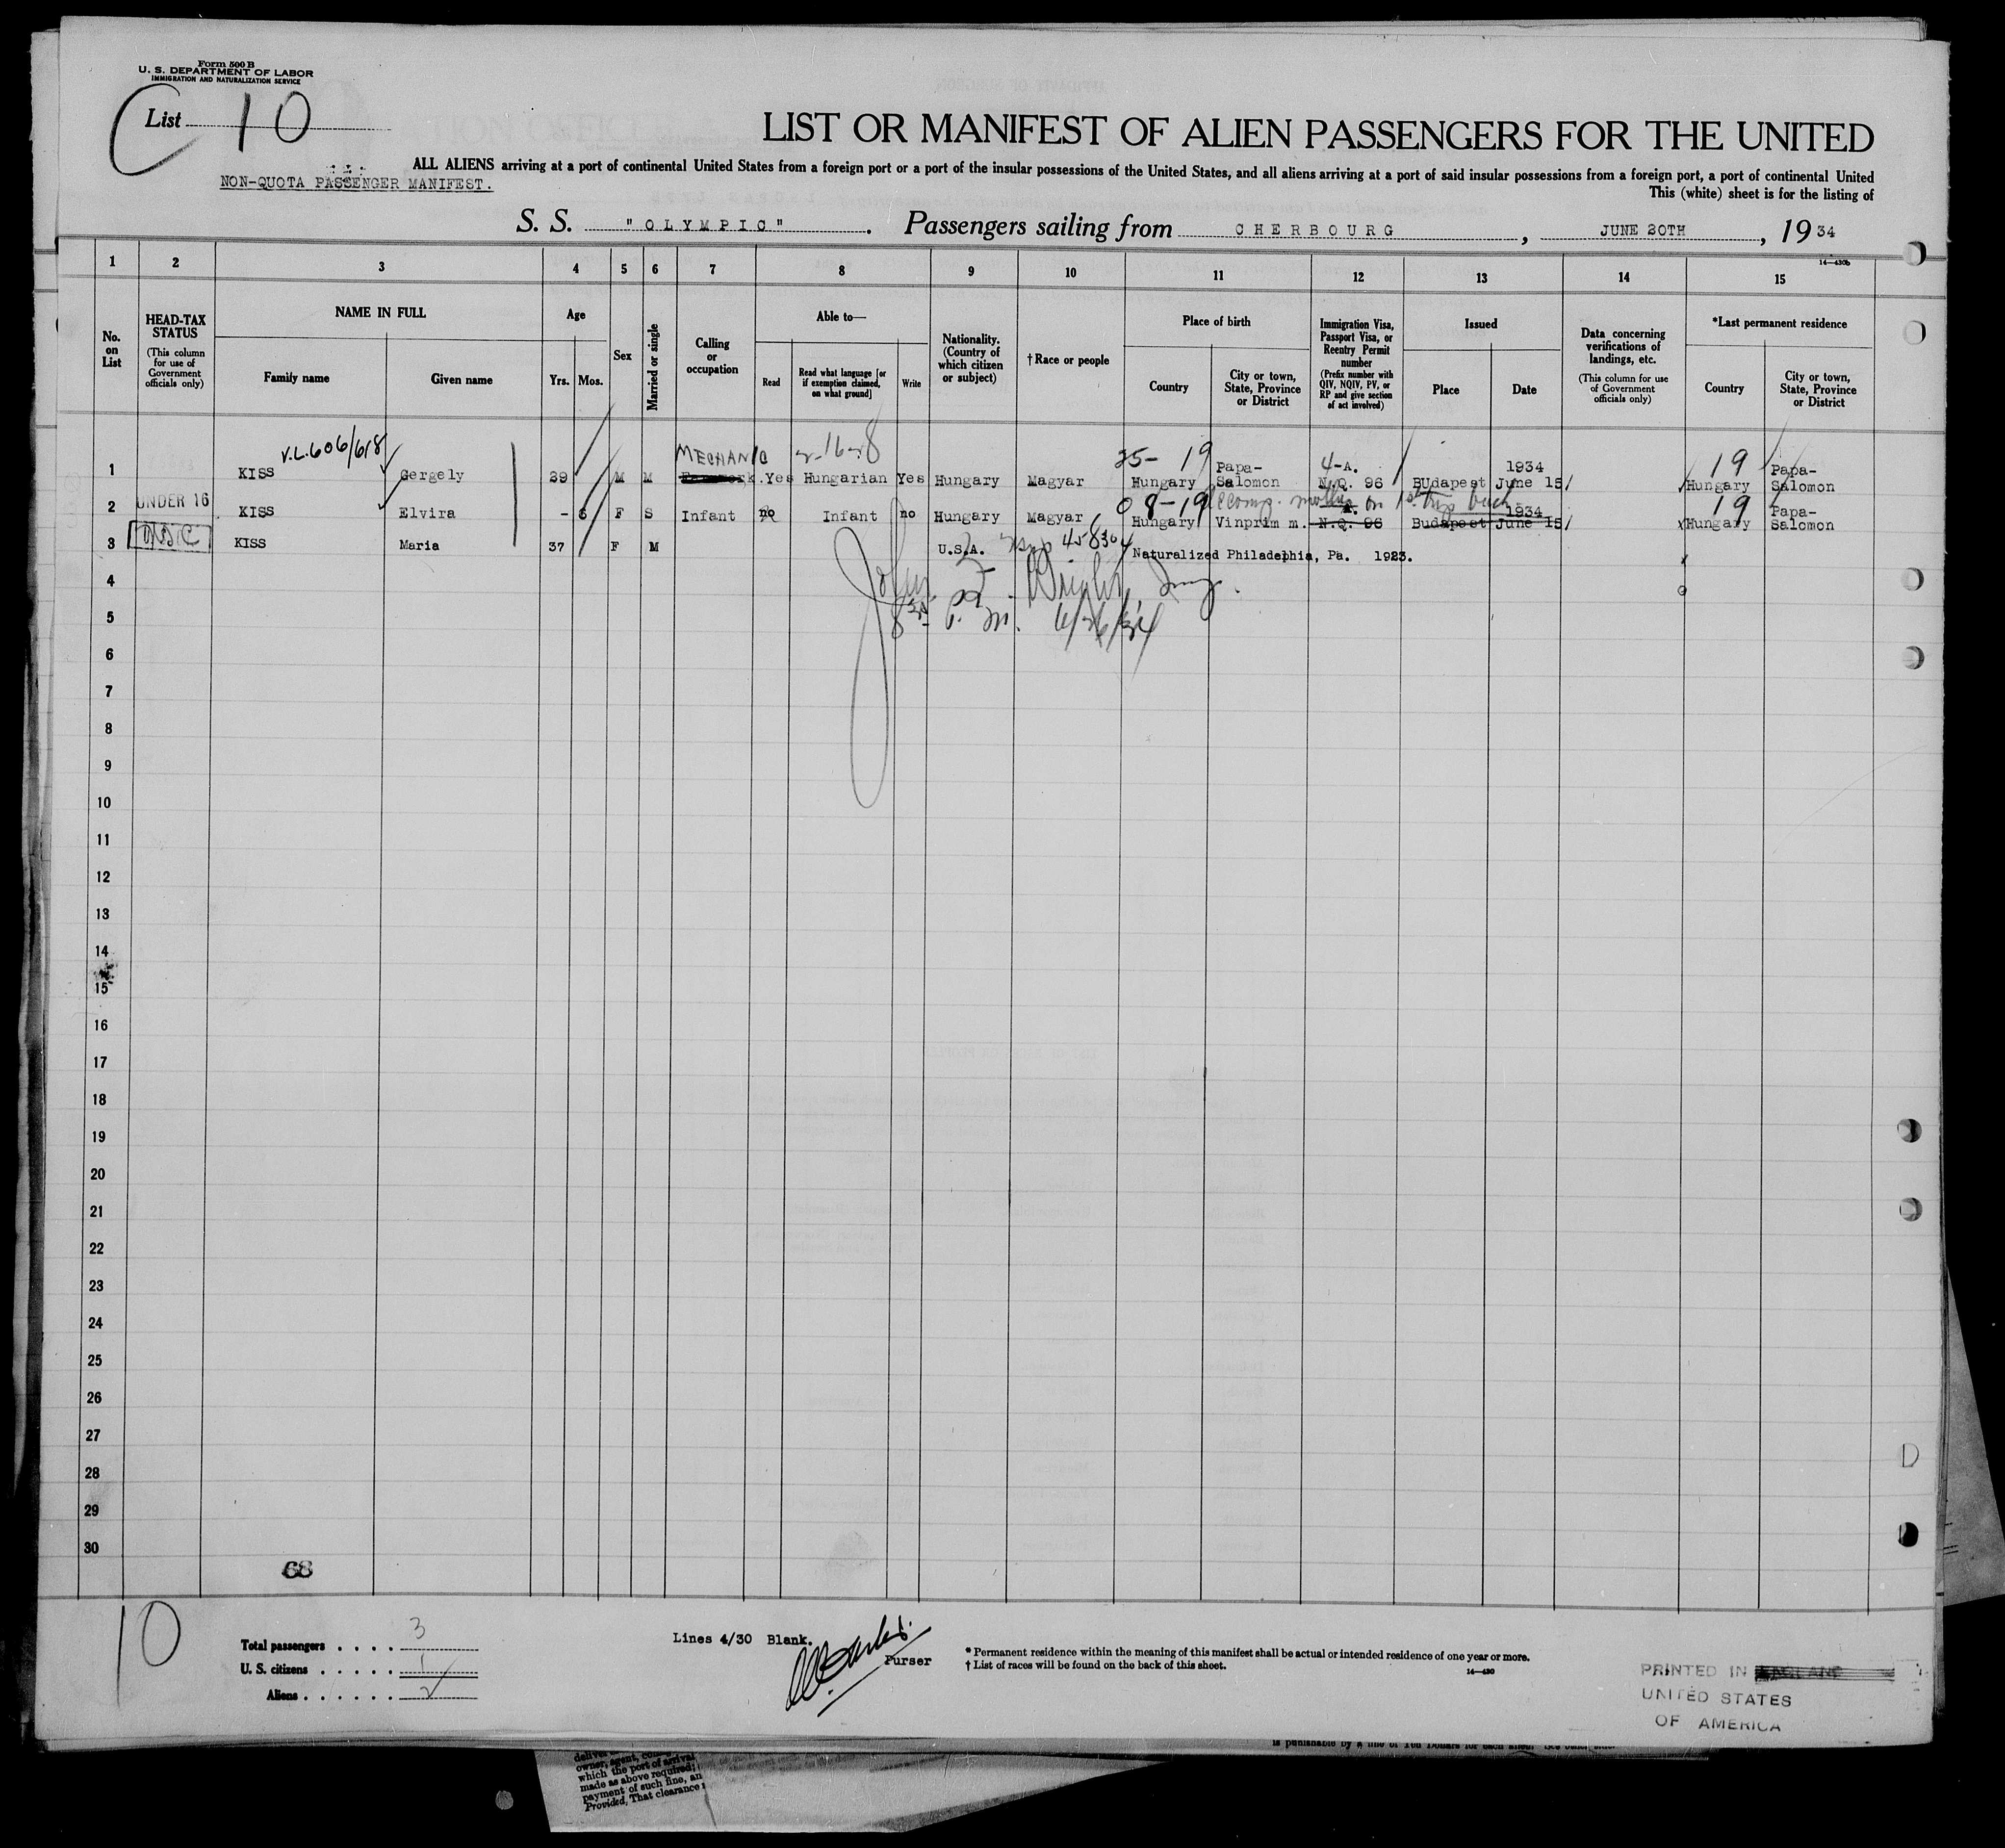 Form 500 B
U. S. DEPARTMENT OF LABOR
IMMIGRATION AND NATURALIZATION SERVICE
List 10
LIST OR MANIFEST OF ALIEN PASSENGERS FOR THE UNITED
ALL ALIENS arriving at a port of continental United States from a foreign port or a port of the insular possessions of the United States, and all aliens arriving at a port of said insular possessions from a foreign port, a port of continental United
NON-QUOTA PASSENGER MANIFEST.
This (white) sheet is for the listing of
S. S. "OLYMPIC". Passengers sailing from CHERBOURG, JUNE 20TH, 1934
14—430b
1 2 3 4 5 6 7 8 9 10 11 12 13 14 15
No. on List
HEAD-TAX STATUS
(This column for use of Government officials only)
NAME IN FULL
Family name Given name
Age
Yrs. Mos.
Sex
Married or single
Calling or occupation
Able to—
Read
Read what language [or if exemption claimed, on what ground]
Write
Nationality. (Country of which citizen or subject)
† Race or people
Place of birth
Country
City or town, State, Province or District
Immigration Visa, Passport Visa, or Reentry Permit number
(Prefix number with QIV, NQIV, PV, or RP and give section of act involved)
Issued
Place Date
Data concerning verifications of landings, etc.
(This column for use of Government officials only)
*Last permanent residence
Country
City or town, State, Province or District
V.L.606/618 MECHANIC 2-16-8 25-19 4-A. 1934 19
1 KISS Gergely 39 M M Yes Hungarian Yes Hungary Magyar Hungary Papa-Salomon N.Q. 96 BUdapest June 15 Hungary Papa-Salomon
UNDER 16 08-19 accomp. mother on 1st trip 1934 19
2 KISS Elvira - 6 F S Infant no Infant no Hungary Magyar Hungary Vinprim m. N.Q. 96 Budapest June 15 Hungary Papa-Salomon
USC
3 KISS Maria 37 F M U.S.A. 458304 Naturalized Philadelphia, Pa. 1923.
4
John Wright Insp.
5
8 P. M. 6/26/34
6
7
8
9
10
11
12
13
14
15
16
17
18
19
20
21
22
23
24
25
26
27
28
29
30
68
10
Total passengers . . . . 3
U. S. citizens . . . . . 1
Aliens . . . . . . 2
Lines 4/30 Blank.
Purser
* Permanent residence within the meaning of this manifest shall be actual or intended residence of one year or more.
† List of races will be found on the back of this sheet.
14—430
PRINTED IN ENGLAND
UNITED STATES
OF AMERICA
owner, agent,
which the port of arrival
made as above required;
payment of such fine, an
Provided, That clearance